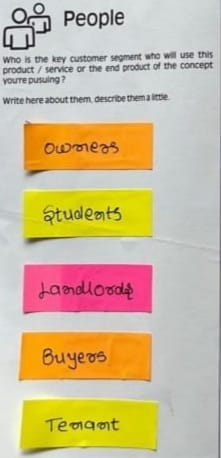 People
Who is the key customer segment who will use this
product / service or the end product of the concept
you're pusuing?
Write here about them, describe them a little.
Owners
Students
Landlords
Buyers
Tenant